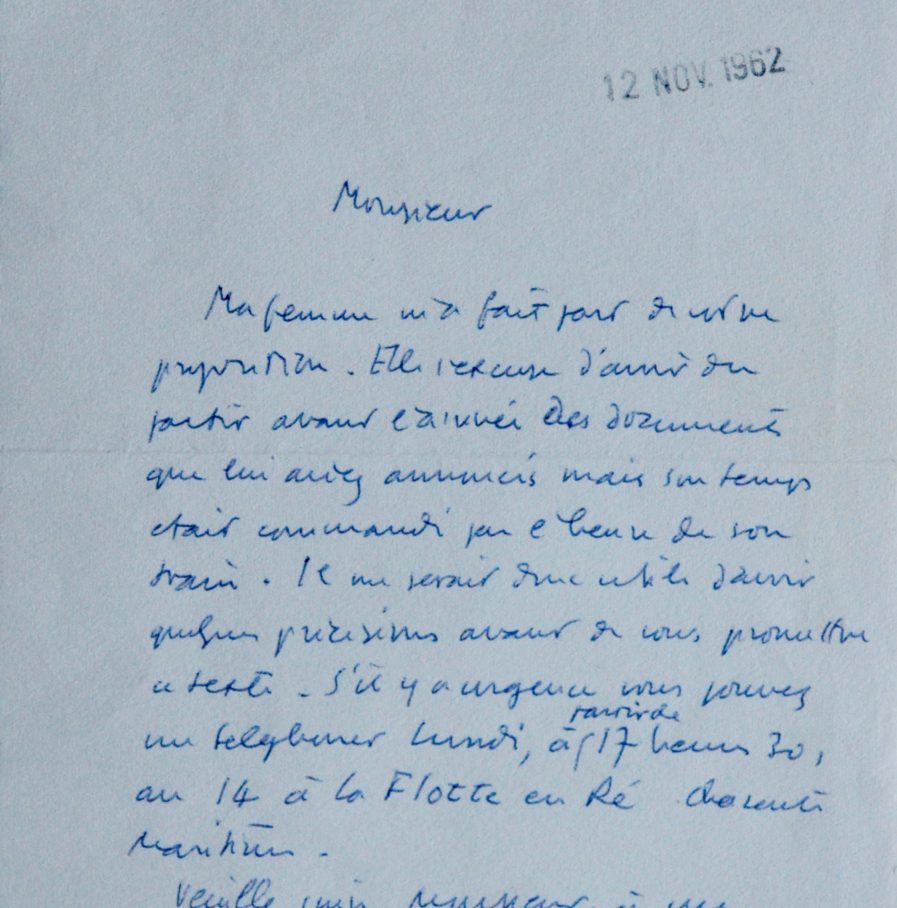 12 NOV. 1962
Monsieur
Ma femme m'a fait part de votre
proposition. Elle s'excuse d'avoir du
partir avant l'arrivée des documents
que lui aviez annoncés mais son temps
était commandé par l'heure de son
train. Il me serait donc utile d'avoir
quelques précisions avant de vous promettre
ce texte. S'il y a urgence vous pouvez
me telephoner Lundi, à partir de 17 heures 30,
au 14 à la Flotte en Ré Charente
Maritime.
Veuillez